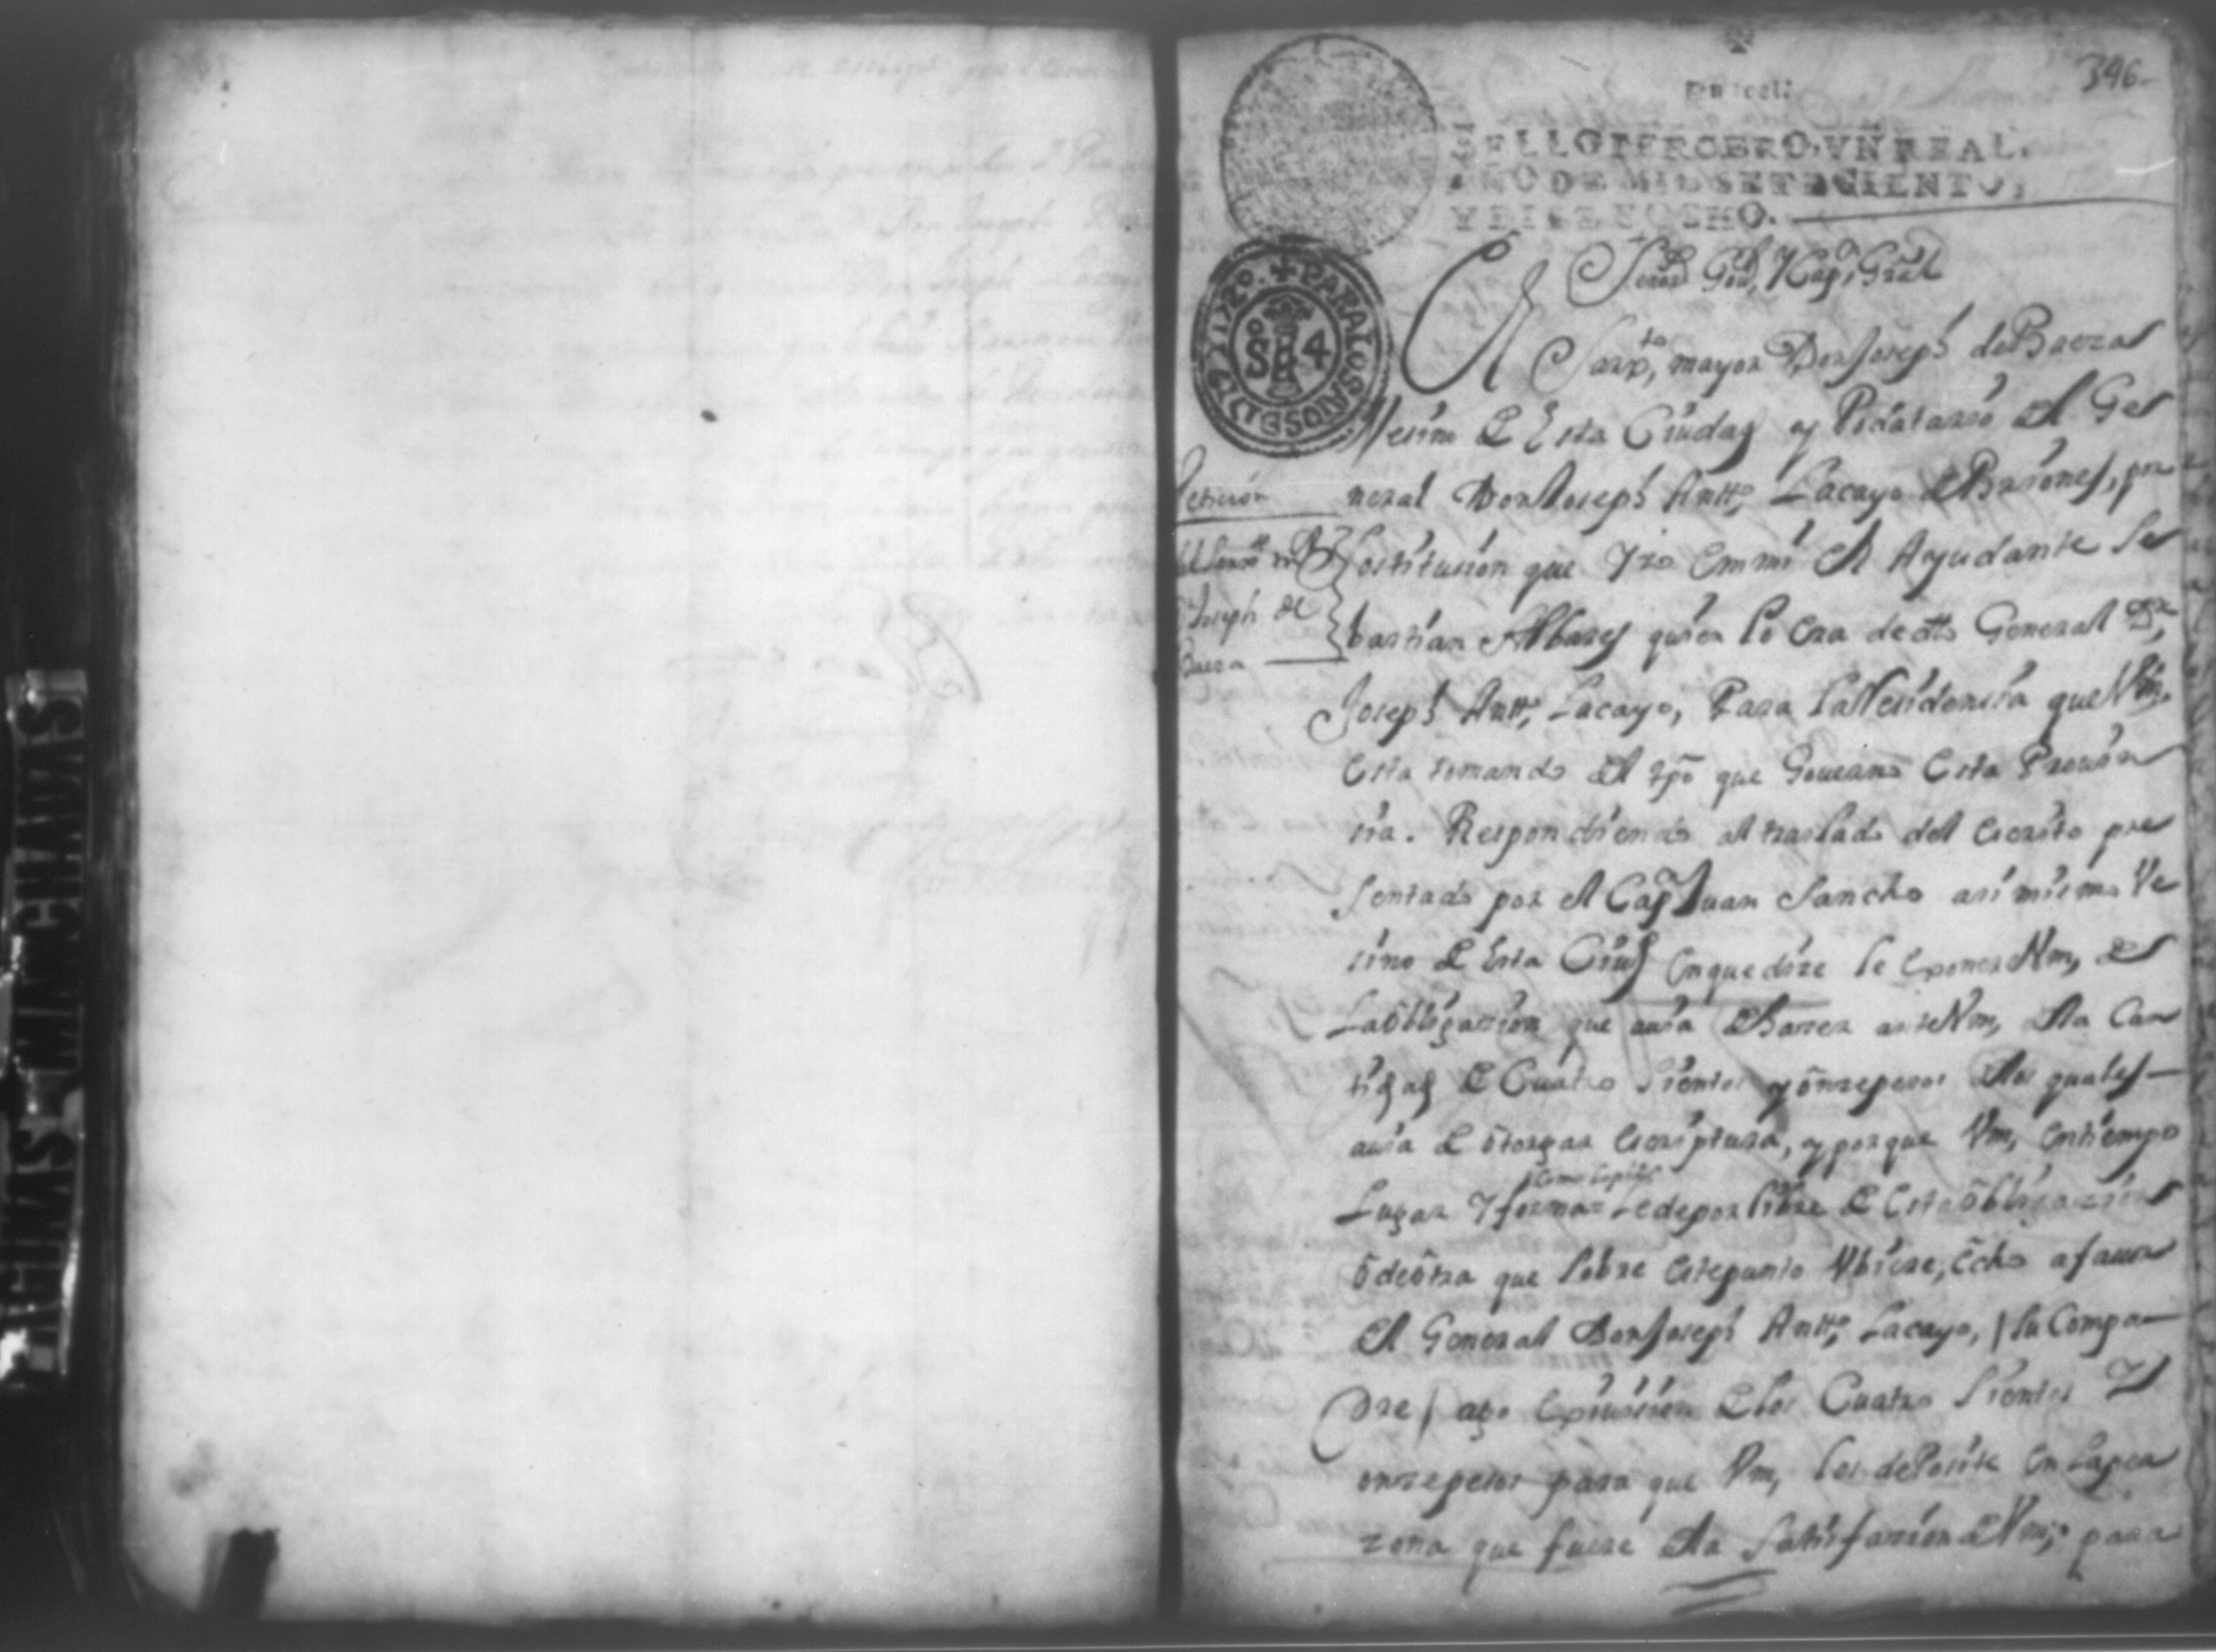 396
SELLO TERCERO, VN REAL,
AÑO DE MIL SETECIENTOS,
Y DIEZ Y OCHO.
PARA LOS AÑOS DE
S 4
Señor Gov.r Y Cap.n Gral
El Sarx.to mayor Don Joseph de Baeza
Vesino de Esta Ciudad y Podatario del Ge
neral Don Joseph Antt.o Lacayo de Briones, por
sostitusion que Yzo en mi el Ayudante Se
bastian Albares quien lo era de dho General Dn
Joseph Antt.o Lacayo, Para la Residensia que Vm.
Esta tomando del tpo que Governo Esta Provin
sia. Respondiendo al traslado del Escrito pre
sentado por el Capn Juan Sancho asi mismo Ve
sino de Esta Ciud en que dize le Exonere Vm, de
La obligassion que avia de Haser ante Vm, de la Can
tidad de Cuatro sientos y onze pesos de los quales
avia de otorgar Escriptura, y porque Vm, en tiempo
Lugar Y forma Le de por libre de Esta obligazion
o de otra que sobre Este punto Ubiere, Echo a favor
del General Don Joseph Antt.o Lacayo, / su Compa
dre / ago Exivision de los Cuatro sientos Y
onze pesos para que Vm, los deposite en la per
zona que fuere de la satisfazion de Vm, para
Peticion
del Sarx.to mr D
Joseph de
Baeza
ALGUNAS MANCHADAS